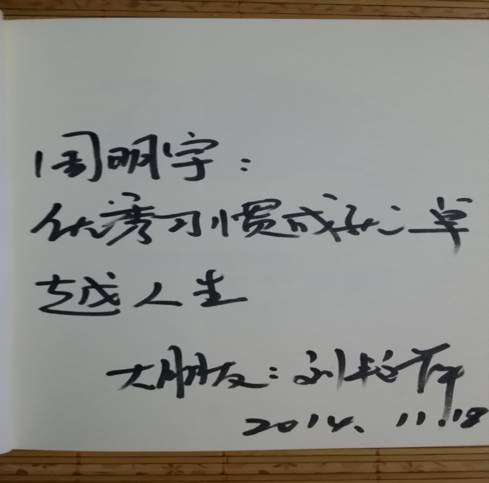 周明宇：
优秀习惯成就卓
越人生
大朋友：刘
2014.11.18